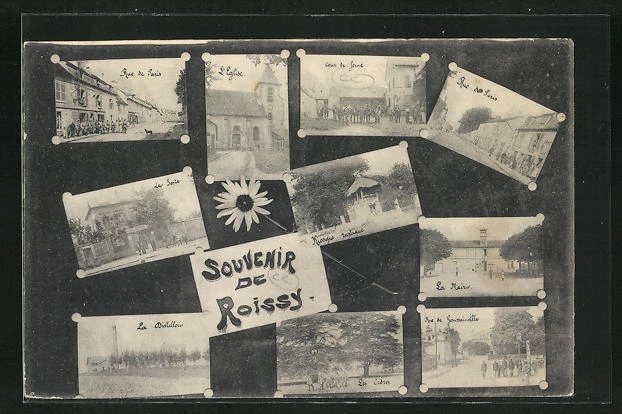 Rue de Paris
L'Eglise.
Cour de ferme
Rue de Paris
La Poste
Kiosque rustique
SOUVENIR
DE
ROISSY.
La Mairie.
La Distillerie
Les Cèdres
Rue de Goussainville